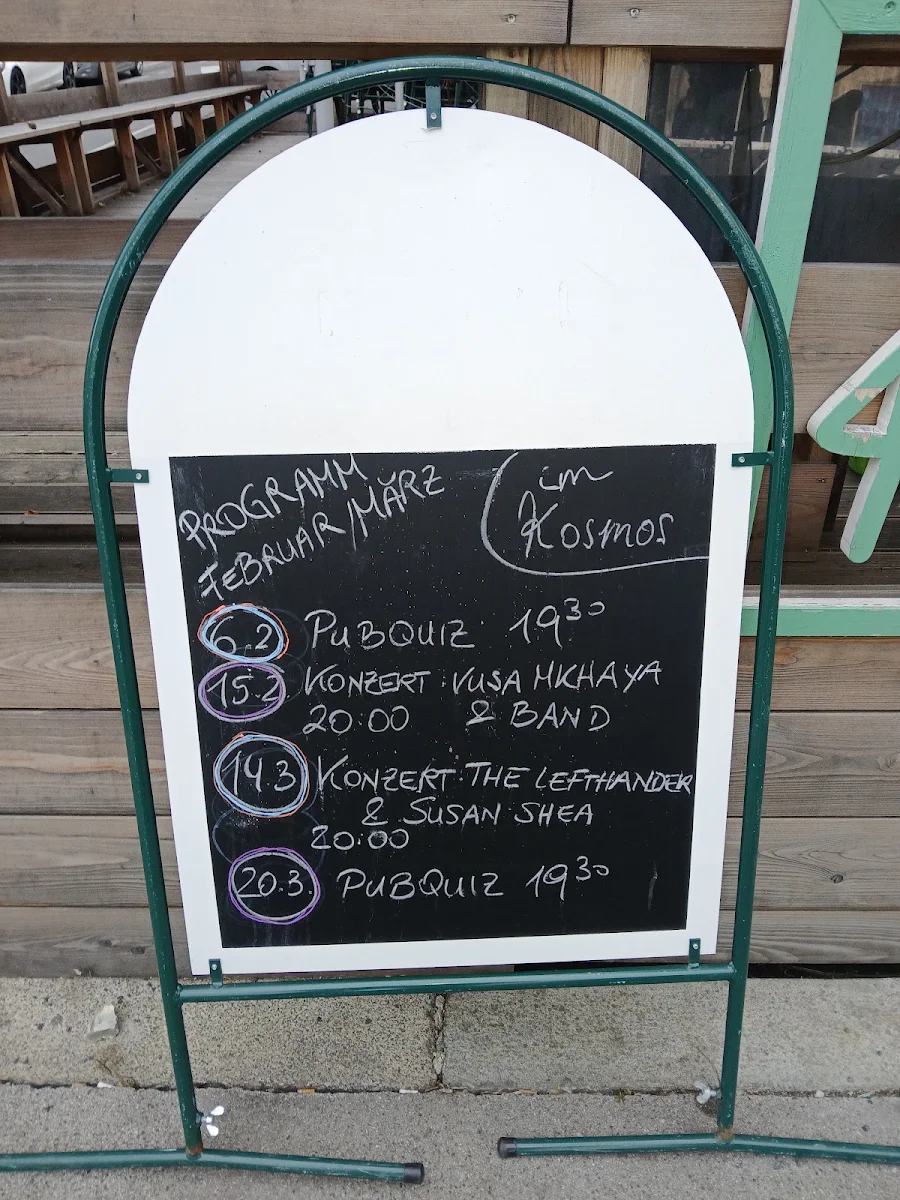 PROGRAMM
FEBRUAR/MÄRZ
im
Kosmos
6.2 PUBQUIZ 19³⁰
15.2 KONZERT VUSA MKHAYA
20:00 & BAND
14.3 KONZERT THE LEFTHANDER
& SUSAN SHEA
20:00
20.3. PUBQUIZ 19³⁰
4